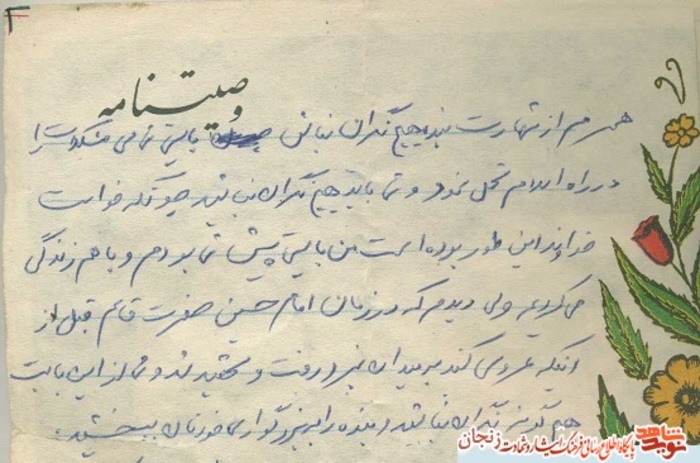 وصیتنامه
همسرم از شهادت بنده هیچ نگران نباش بایستی تمامی مشکلات را
در راه اسلام تحمل نمود و شما باید هیچ نگران نباشید چونکه خواست
خداوند این طور بوده است من بایستی پیش شما بودم و با هم زندگی
می‌کردیم ولی دیدم که در زمان امام حسین حضرت قاسم قبل از
اینکه عروسی کند به میدان نبرد رفت و شهید شد و شما از این بابت
هیچگونه نگران نباشید و بنده را به بزرگواری خودتان ببخشید.
نوید شاهد
پایگاه اطلاع رسانی فرهنگ ایثار و شهادت زنجان